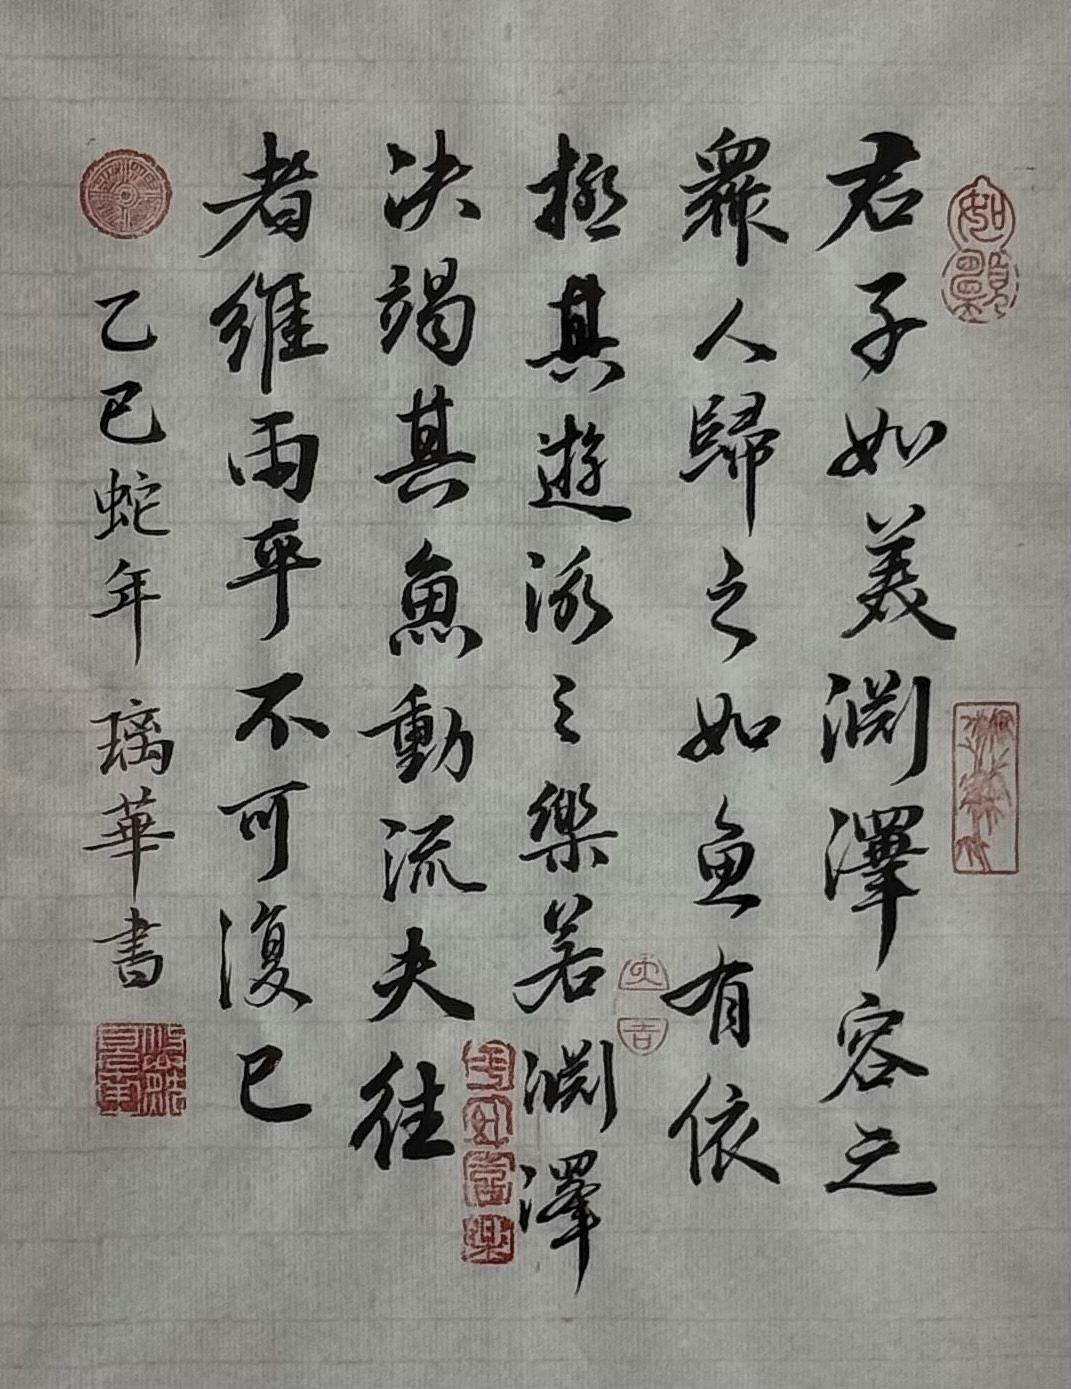 如願
君子如美渊澤容之
眾人歸之如魚有依
極其遊泳之樂若渊澤
決竭其魚動流夫往
者維雨乎不可復已
乙巳蛇年 璃華書